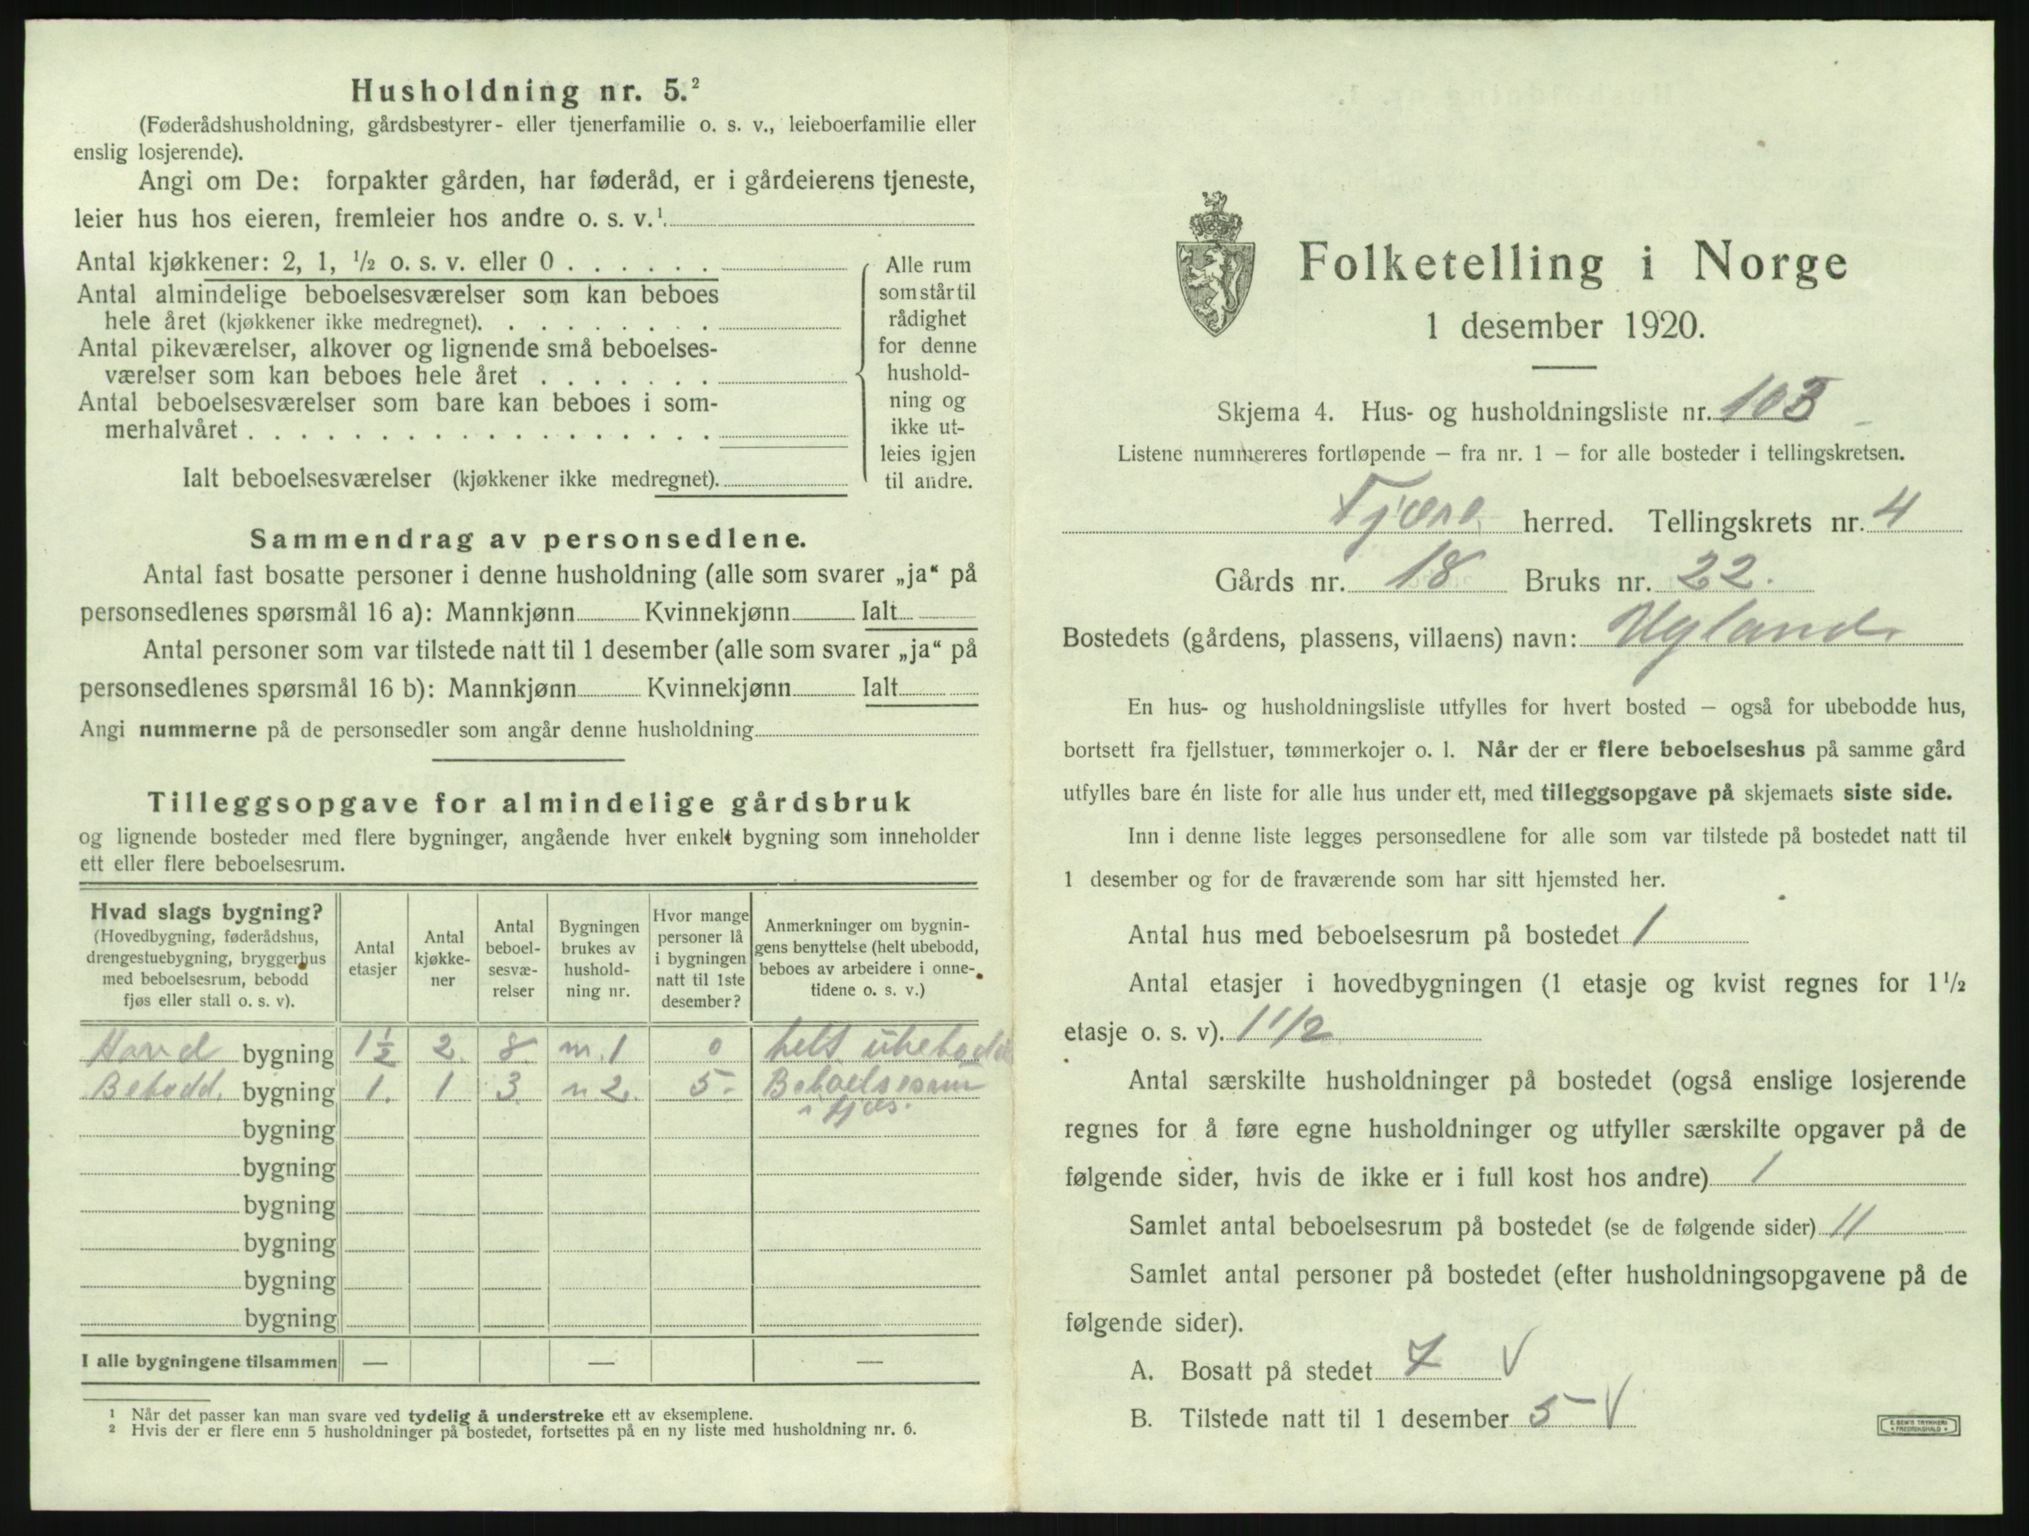 Husholdning nr. 5.²
(Føderådshusholdning, gårdsbestyrer- eller tjenerfamilie o. s. v., leieboerfamilie eller
enslig losjerende).
Angi om De: forpakter gården, har føderåd, er i gårdeierens tjeneste,
leier hus hos eieren, fremleier hos andre o. s. v.¹.
Antal kjøkkener: 2, 1, ½ o. s. v. eller 0 . . . . . .
Antal almindelige beboelsesværelser som kan beboes
hele året (kjøkkener ikke medregnet). . . . . . . . .
Antal pikeværelser, alkover og lignende små beboelses-
værelser som kan beboes hele året . . . . . . .
Antal beboelsesværelser som bare kan beboes i som-
merhalvåret . . . . . . . . . . . . . . . . . .
Ialt beboelsesværelser (kjøkkener ikke medregnet).
Alle rum
som står til
rådighet
for denne
hushold-
ning og
ikke ut-
leies igjen
til andre.
Sammendrag av personsedlene.
Antal fast bosatte personer i denne husholdning (alle som svarer „ja“ på
personsedlenes spørsmål 16 a): Mannkjønn Kvinnekjønn Ialt
Antal personer som var tilstede natt til 1 desember (alle som svarer „ja“ på
personsedlenes spørsmål 16 b): Mannkjønn Kvinnekjønn Ialt
Angi nummerne på de personsedler som angår denne husholdning
Tilleggsopgave for almindelige gårdsbruk
og lignende bosteder med flere bygninger, angående hver enkelt bygning som inneholder
ett eller flere beboelsesrum.
Hvad slags bygning?
(Hovedbygning, føderådshus,
drengestuebygning, bryggerhus
med beboelsesrum, bebodd
fjøs eller stall o. s. v).
Antal
etasjer
Antal
kjøkke-
ner
Antal
beboel-
sesvæ-
relser
Bygningen
brukes av
hushold-
ning nr.
Hvor mange
personer lå
i bygningen
natt til 1ste
desember?
Anmerkninger om bygnin-
gens benyttelse (helt ubebodd,
beboes av arbeidere i onne-
tidene o. s. v.)
Hovd bygning 1½ 2. 8 n. 1 0 helt ubebodd
Bebodd. bygning 1. 1 3 n 2. 5- Beboelsesrum
i fjøs.
bygning
bygning
bygning
bygning
bygning
bygning
I alle bygningene tilsammen — — —
¹ Når det passer kan man svare ved tydelig å understreke ett av eksemplene.
² Hvis der er flere enn 5 husholdninger på bostedet, fortsettes på en ny liste med husholdning nr. 6.
Folketelling i Norge
1 desember 1920.
Skjema 4. Hus- og husholdningsliste nr. 103
Listene nummereres fortløpende — fra nr. 1 — for alle bosteder i tellingskretsen.
Fjære herred. Tellingskrets nr. 4
Gårds nr. 18 Bruks nr. 22.
Bostedets (gårdens, plassens, villaens) navn: Ugland
En hus- og husholdningsliste utfylles for hvert bosted — også for ubebodde hus,
bortsett fra fjellstuer, tømmerkojer o. l. Når der er flere beboelseshus på samme gård
utfylles bare én liste for alle hus under ett, med tilleggsopgave på skjemaets siste side.
Inn i denne liste legges personsedlene for alle som var tilstede på bostedet natt til
1 desember og for de fraværende som har sitt hjemsted her.
Antal hus med beboelsesrum på bostedet 1
Antal etasjer i hovedbygningen (1 etasje og kvist regnes for 1½
etasje o. s. v). 1 1/2
Antal særskilte husholdninger på bostedet (også enslige losjerende
regnes for å føre egne husholdninger og utfyller særskilte opgaver på de
følgende sider, hvis de ikke er i full kost hos andre) 1
Samlet antal beboelsesrum på bostedet (se de følgende sider) 11
Samlet antal personer på bostedet (efter husholdningsopgavene på de
følgende sider).
A. Bosatt på stedet 7 V
B. Tilstede natt til 1 desember 5- V
E. SEM'S TRYKKERI
FREDRIKSHALD